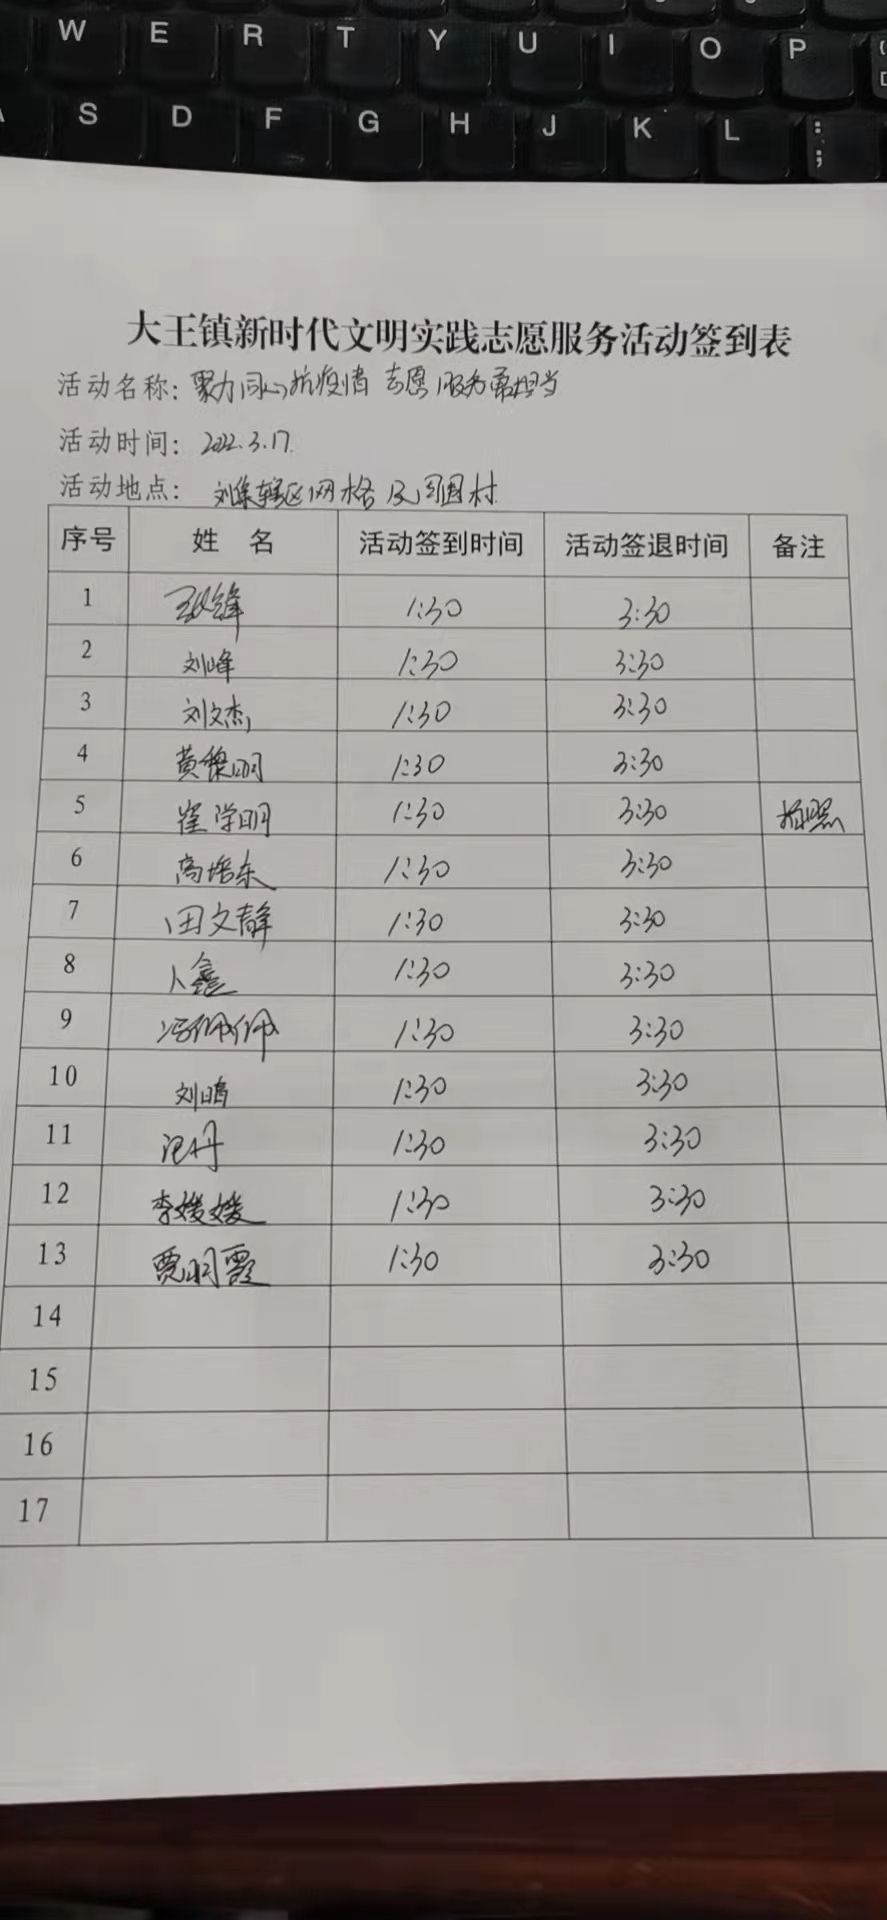 W E R T Y U I O P
S D F G H J K L ; :
大王镇新时代文明实践志愿服务活动签到表
活动名称: 聚力同心抗疫情 志愿服务勇担当
活动时间: 2022.3.17.
活动地点: 刘集辖区网格及周围村
序号 姓 名 活动签到时间 活动签退时间 备注
1 1:30 3:30
2 刘峰 1:30 3:30
3 刘文杰 1:30 3:30
4 黄黎明 1:30 3:30
5 崔学明 1:30 3:30 拍照
6 高培东 1:30 3:30
7 田文静 1:30 3:30
8 卜鑫 1:30 3:30
9 冯佩佩 1:30 3:30
10 刘晴 1:30 3:30
11 1:30 3:30
12 李媛媛 1:30 3:30
13 贾明霞 1:30 3:30
14
15
16
17